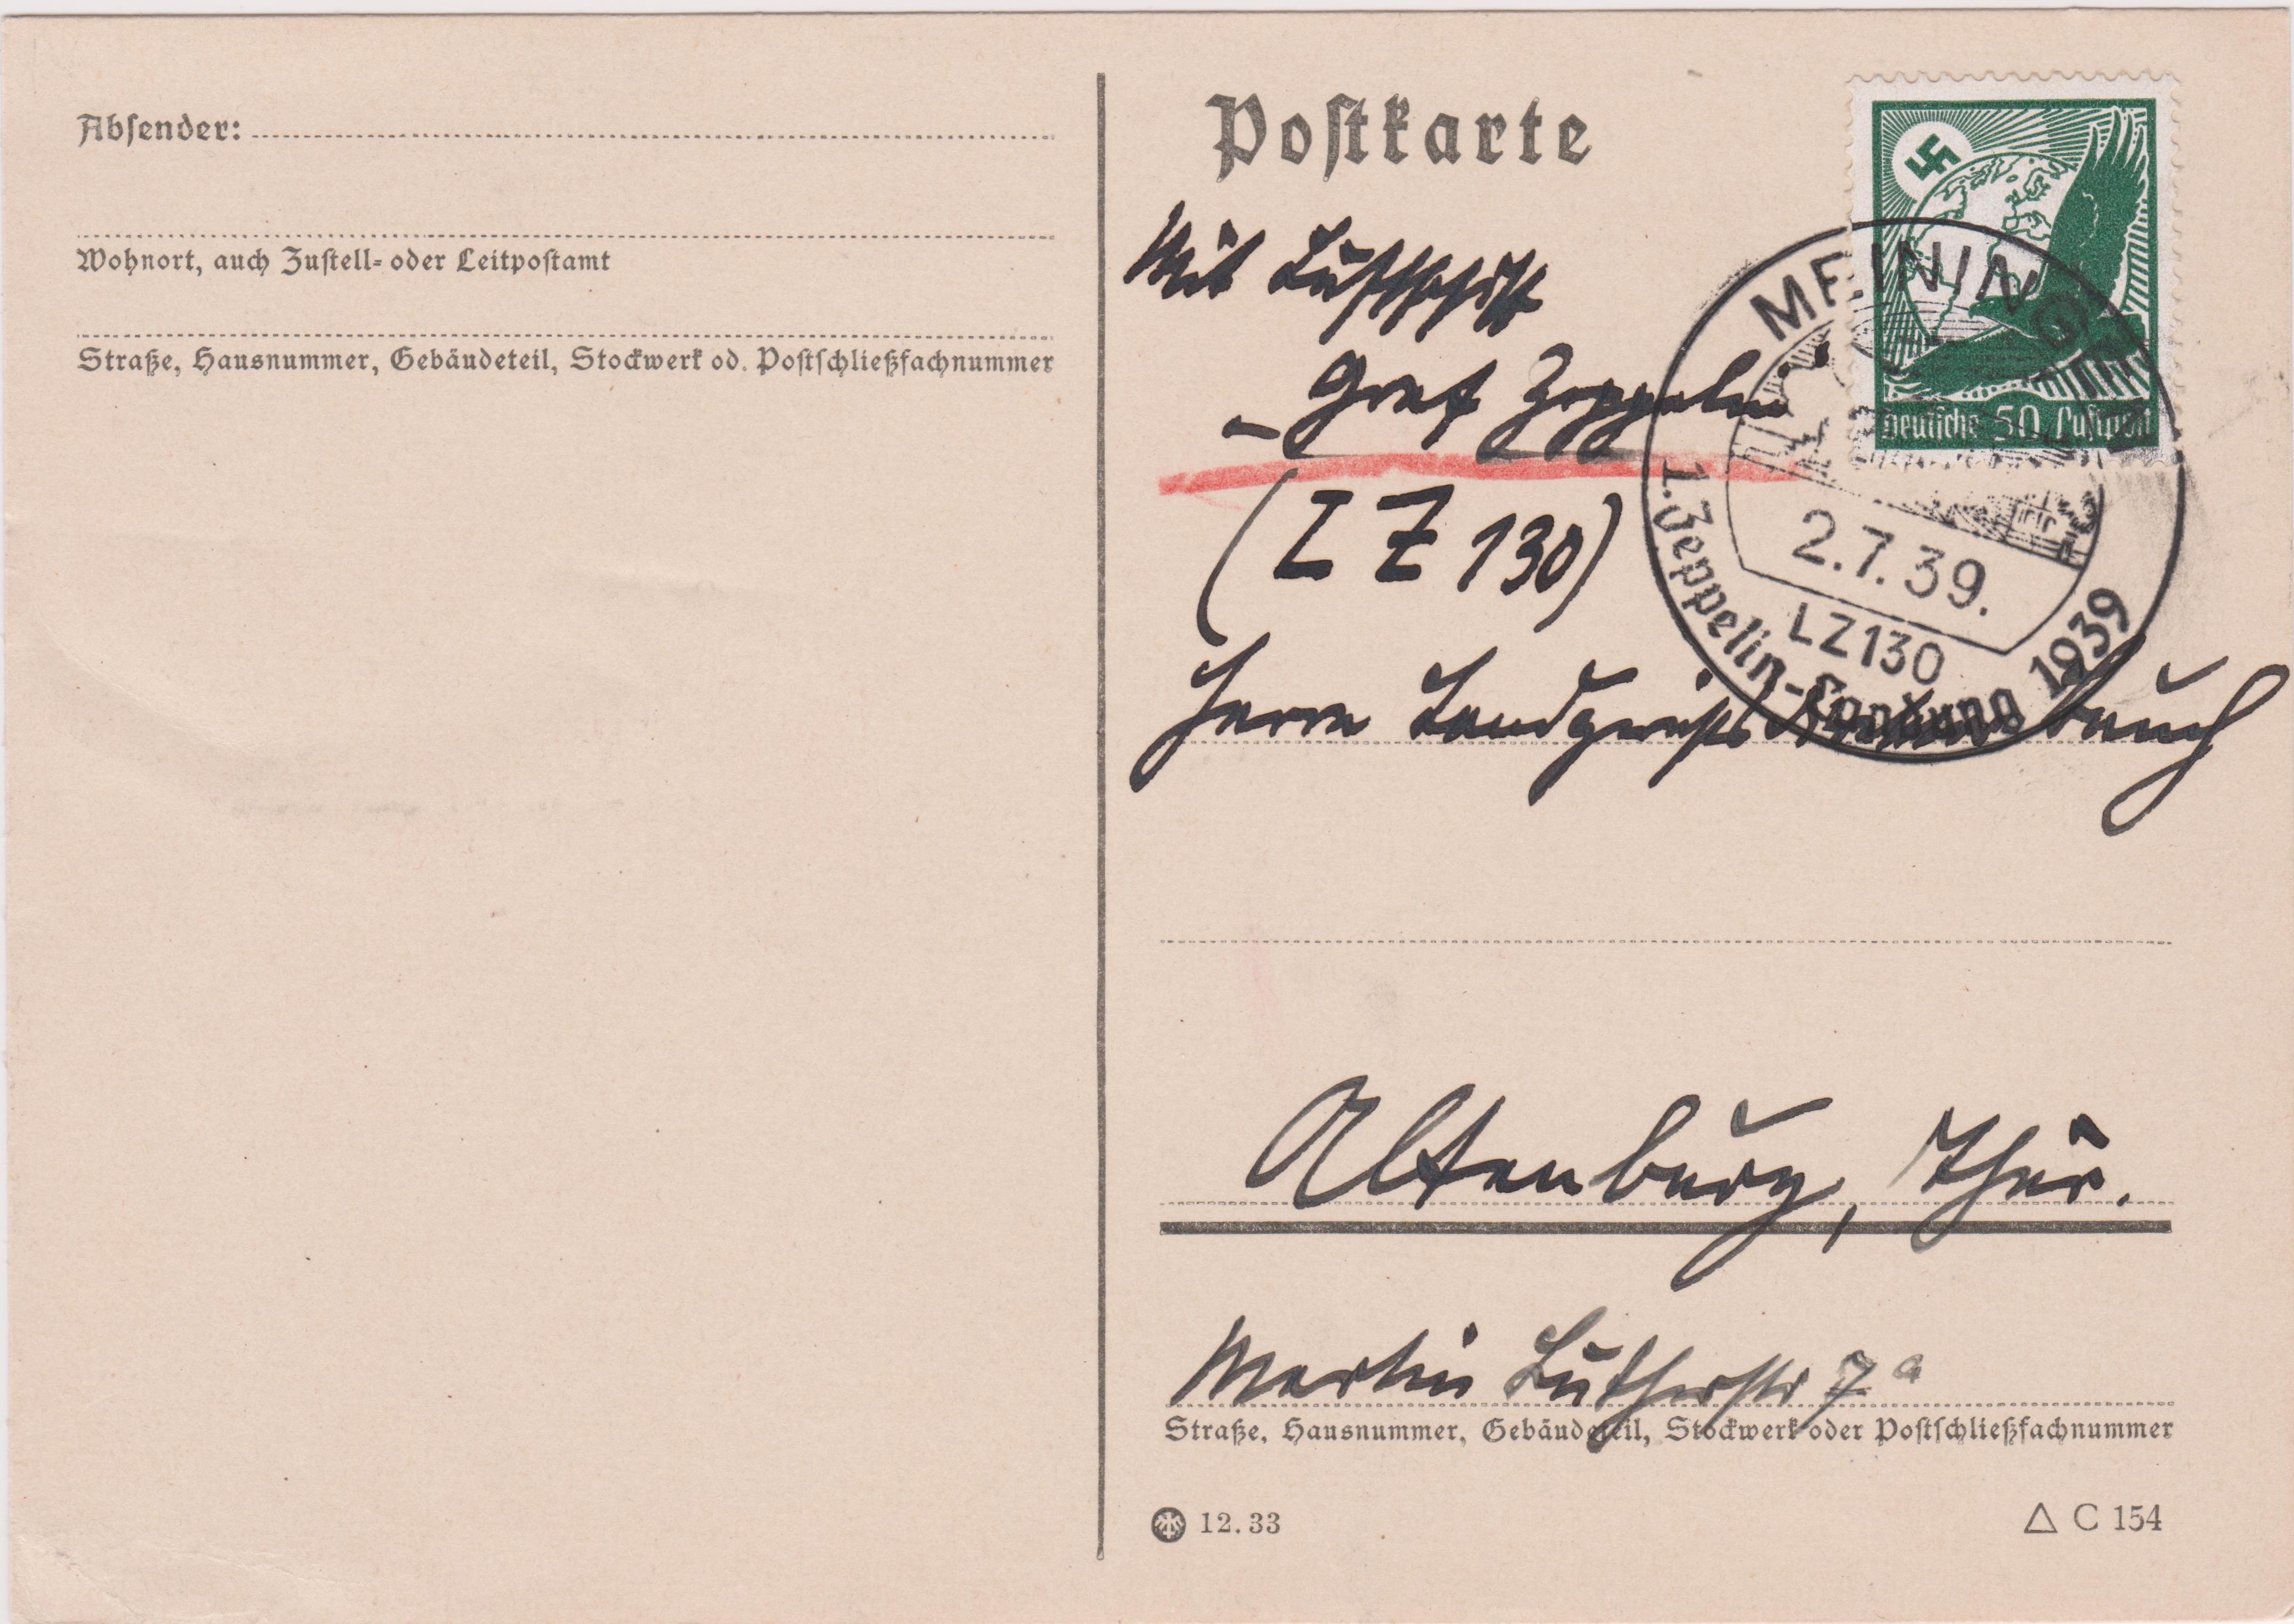 Absender:
Wohnort, auch Zustell- oder Leitpostamt
Straße, Hausnummer, Gebäudeteil, Stockwerk od. Postschließfachnummer
Postkarte
Deutsche 50 Luftpost
Mit Luftschiff
- Graf Zeppelin
(LZ 130)
MEININGEN
2.7.39.
LZ130
1. Zeppelin-Landung 1939
Herrn Landgerichts
Altenburg, Thür.
Martin Lutherstr 7a
Straße, Hausnummer, Gebäudeteil, Stockwerk oder Postschließfachnummer
12.33
△ C 154